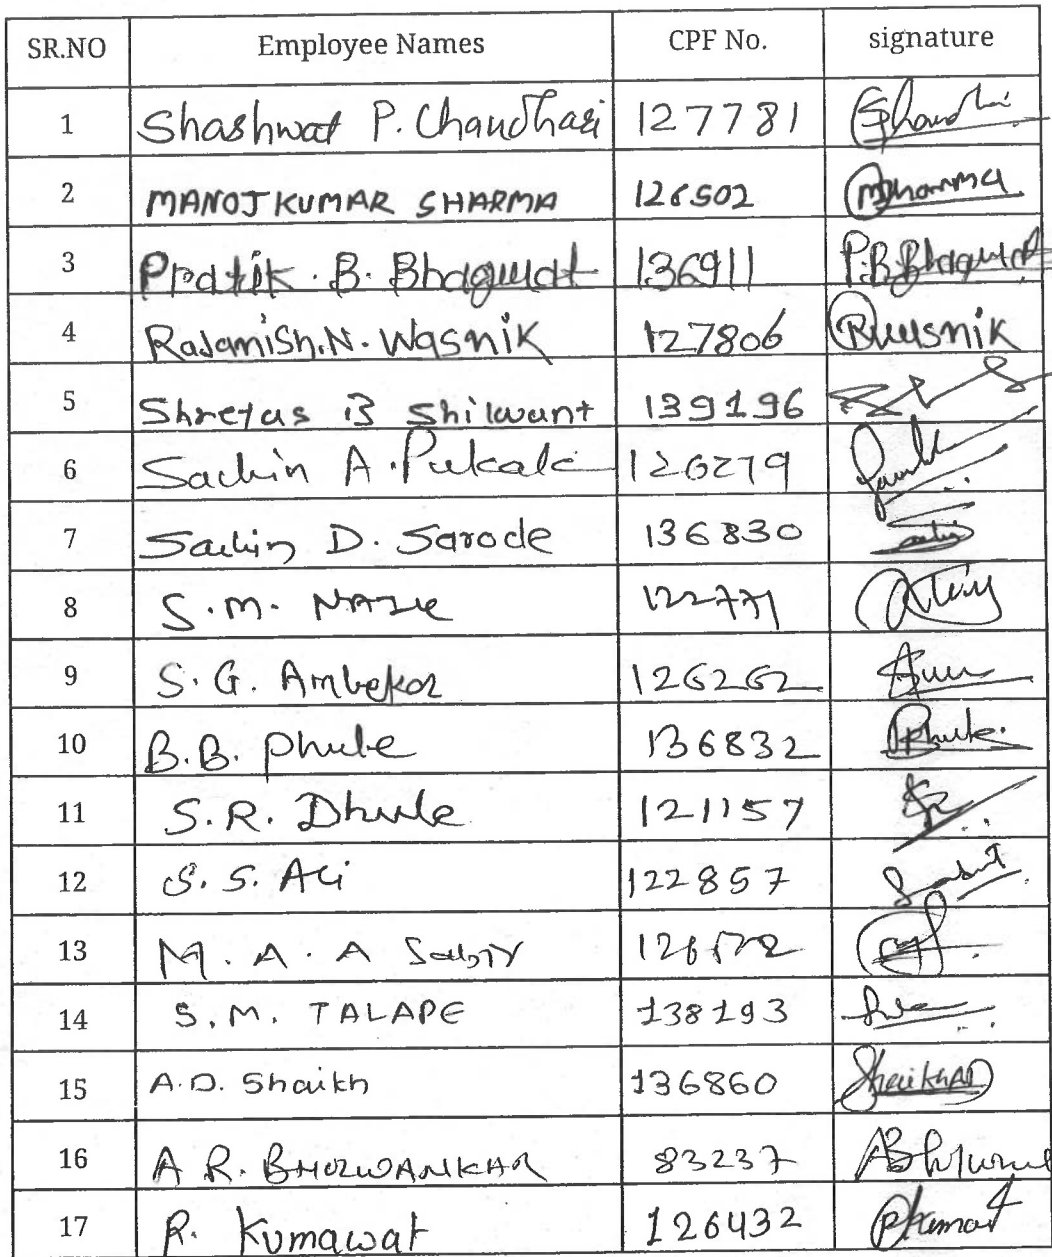 SR.NO Employee Names CPF No. signature
1 Shashwat P. Chaudhari 127781
2 MANOJ KUMAR SHARMA 126502
3 Pratik . B. Bhagwat 136911 P.B.Bhagwat
4 Rajanish.N. Wasnik 127806
5 Shreyas B Shilwant 139196
6 Sachin A. 126279
7 Sachin D. Sarode 136830
8 S.M. 122771
9 S.G. Ambekar 126262
10 B.B. Phule 136832
11 S.R. Dhule 121157
12 S.S. Ali 122857
13 M. A. A Sabir
14 S.M. TALAPE 138193
15 A.D. Shaikh 136860
16 A R. 83237
17 R. Kumawat 126432